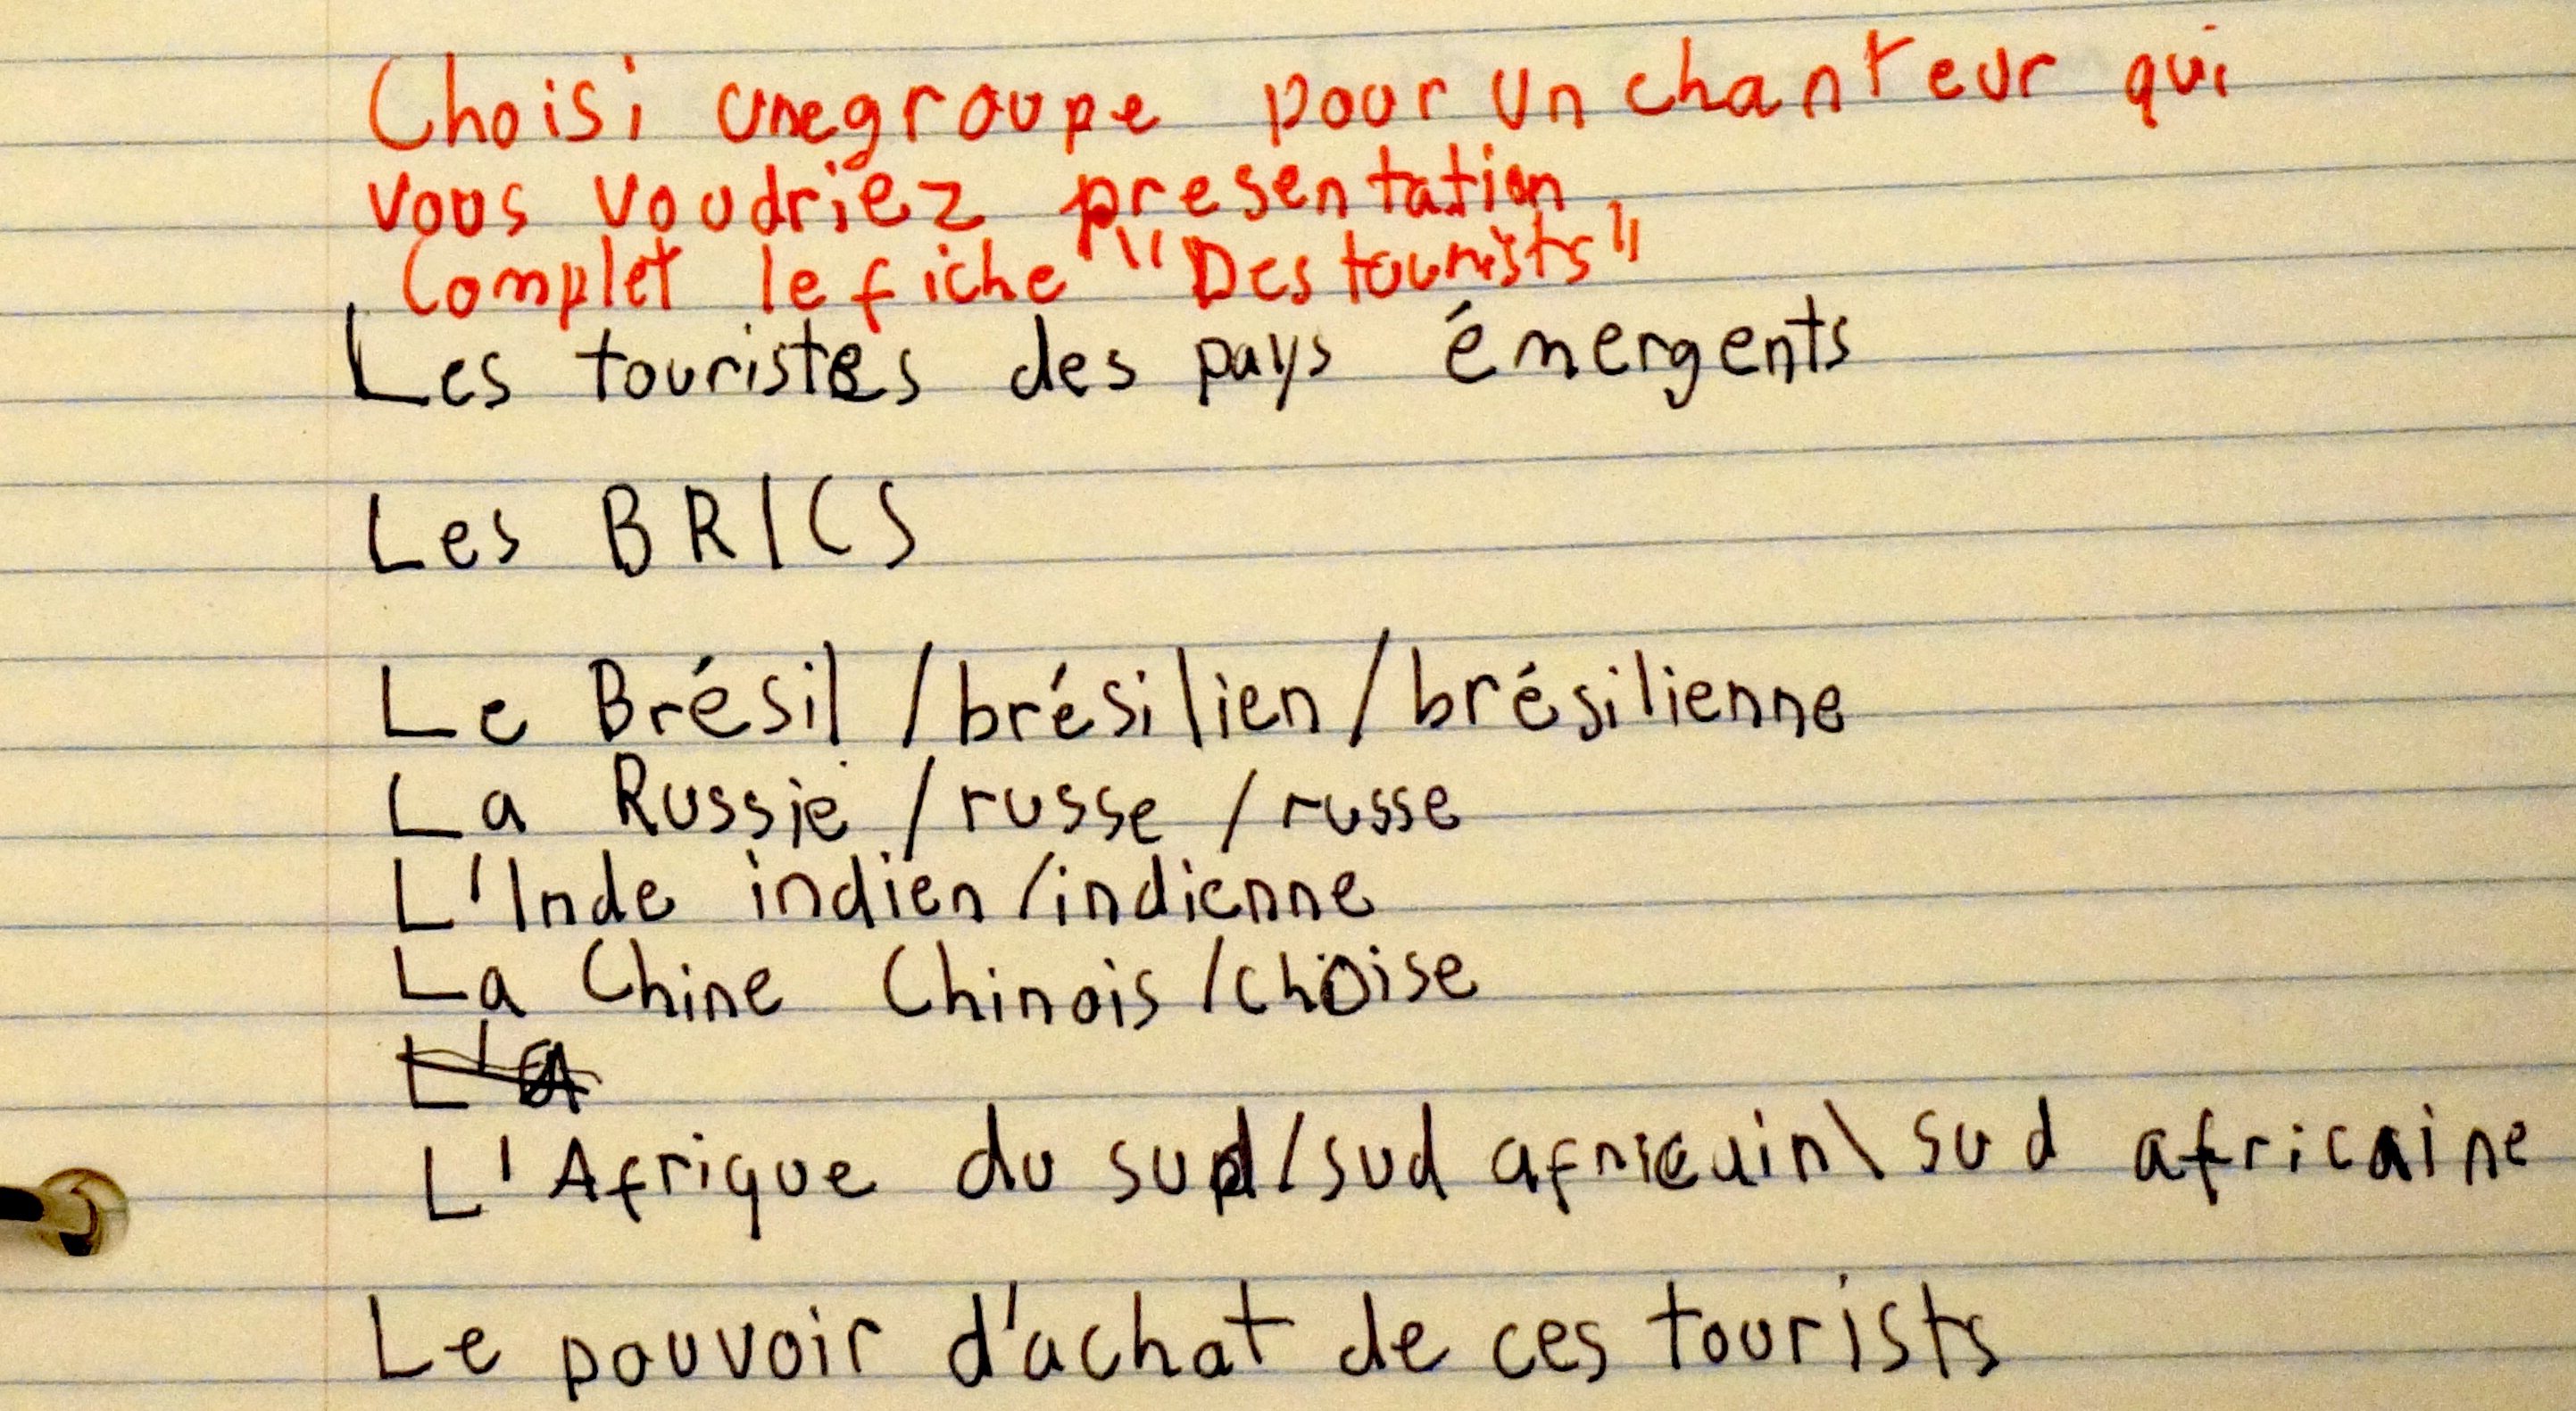 Choisi unegroupe pour un chanteur qui
vous voudriez presentation
Complet le fiche "Des tourists"
Les touristes des pays émergents
Les BRICS
Le Brésil / brésilien / brésilienne
La Russie / russe / russe
L'Inde indien / indienne
La Chine Chinois / choise
L'Afrique du sud / sud africain \ sud africaine
Le pouvoir d'achat de ces tourists